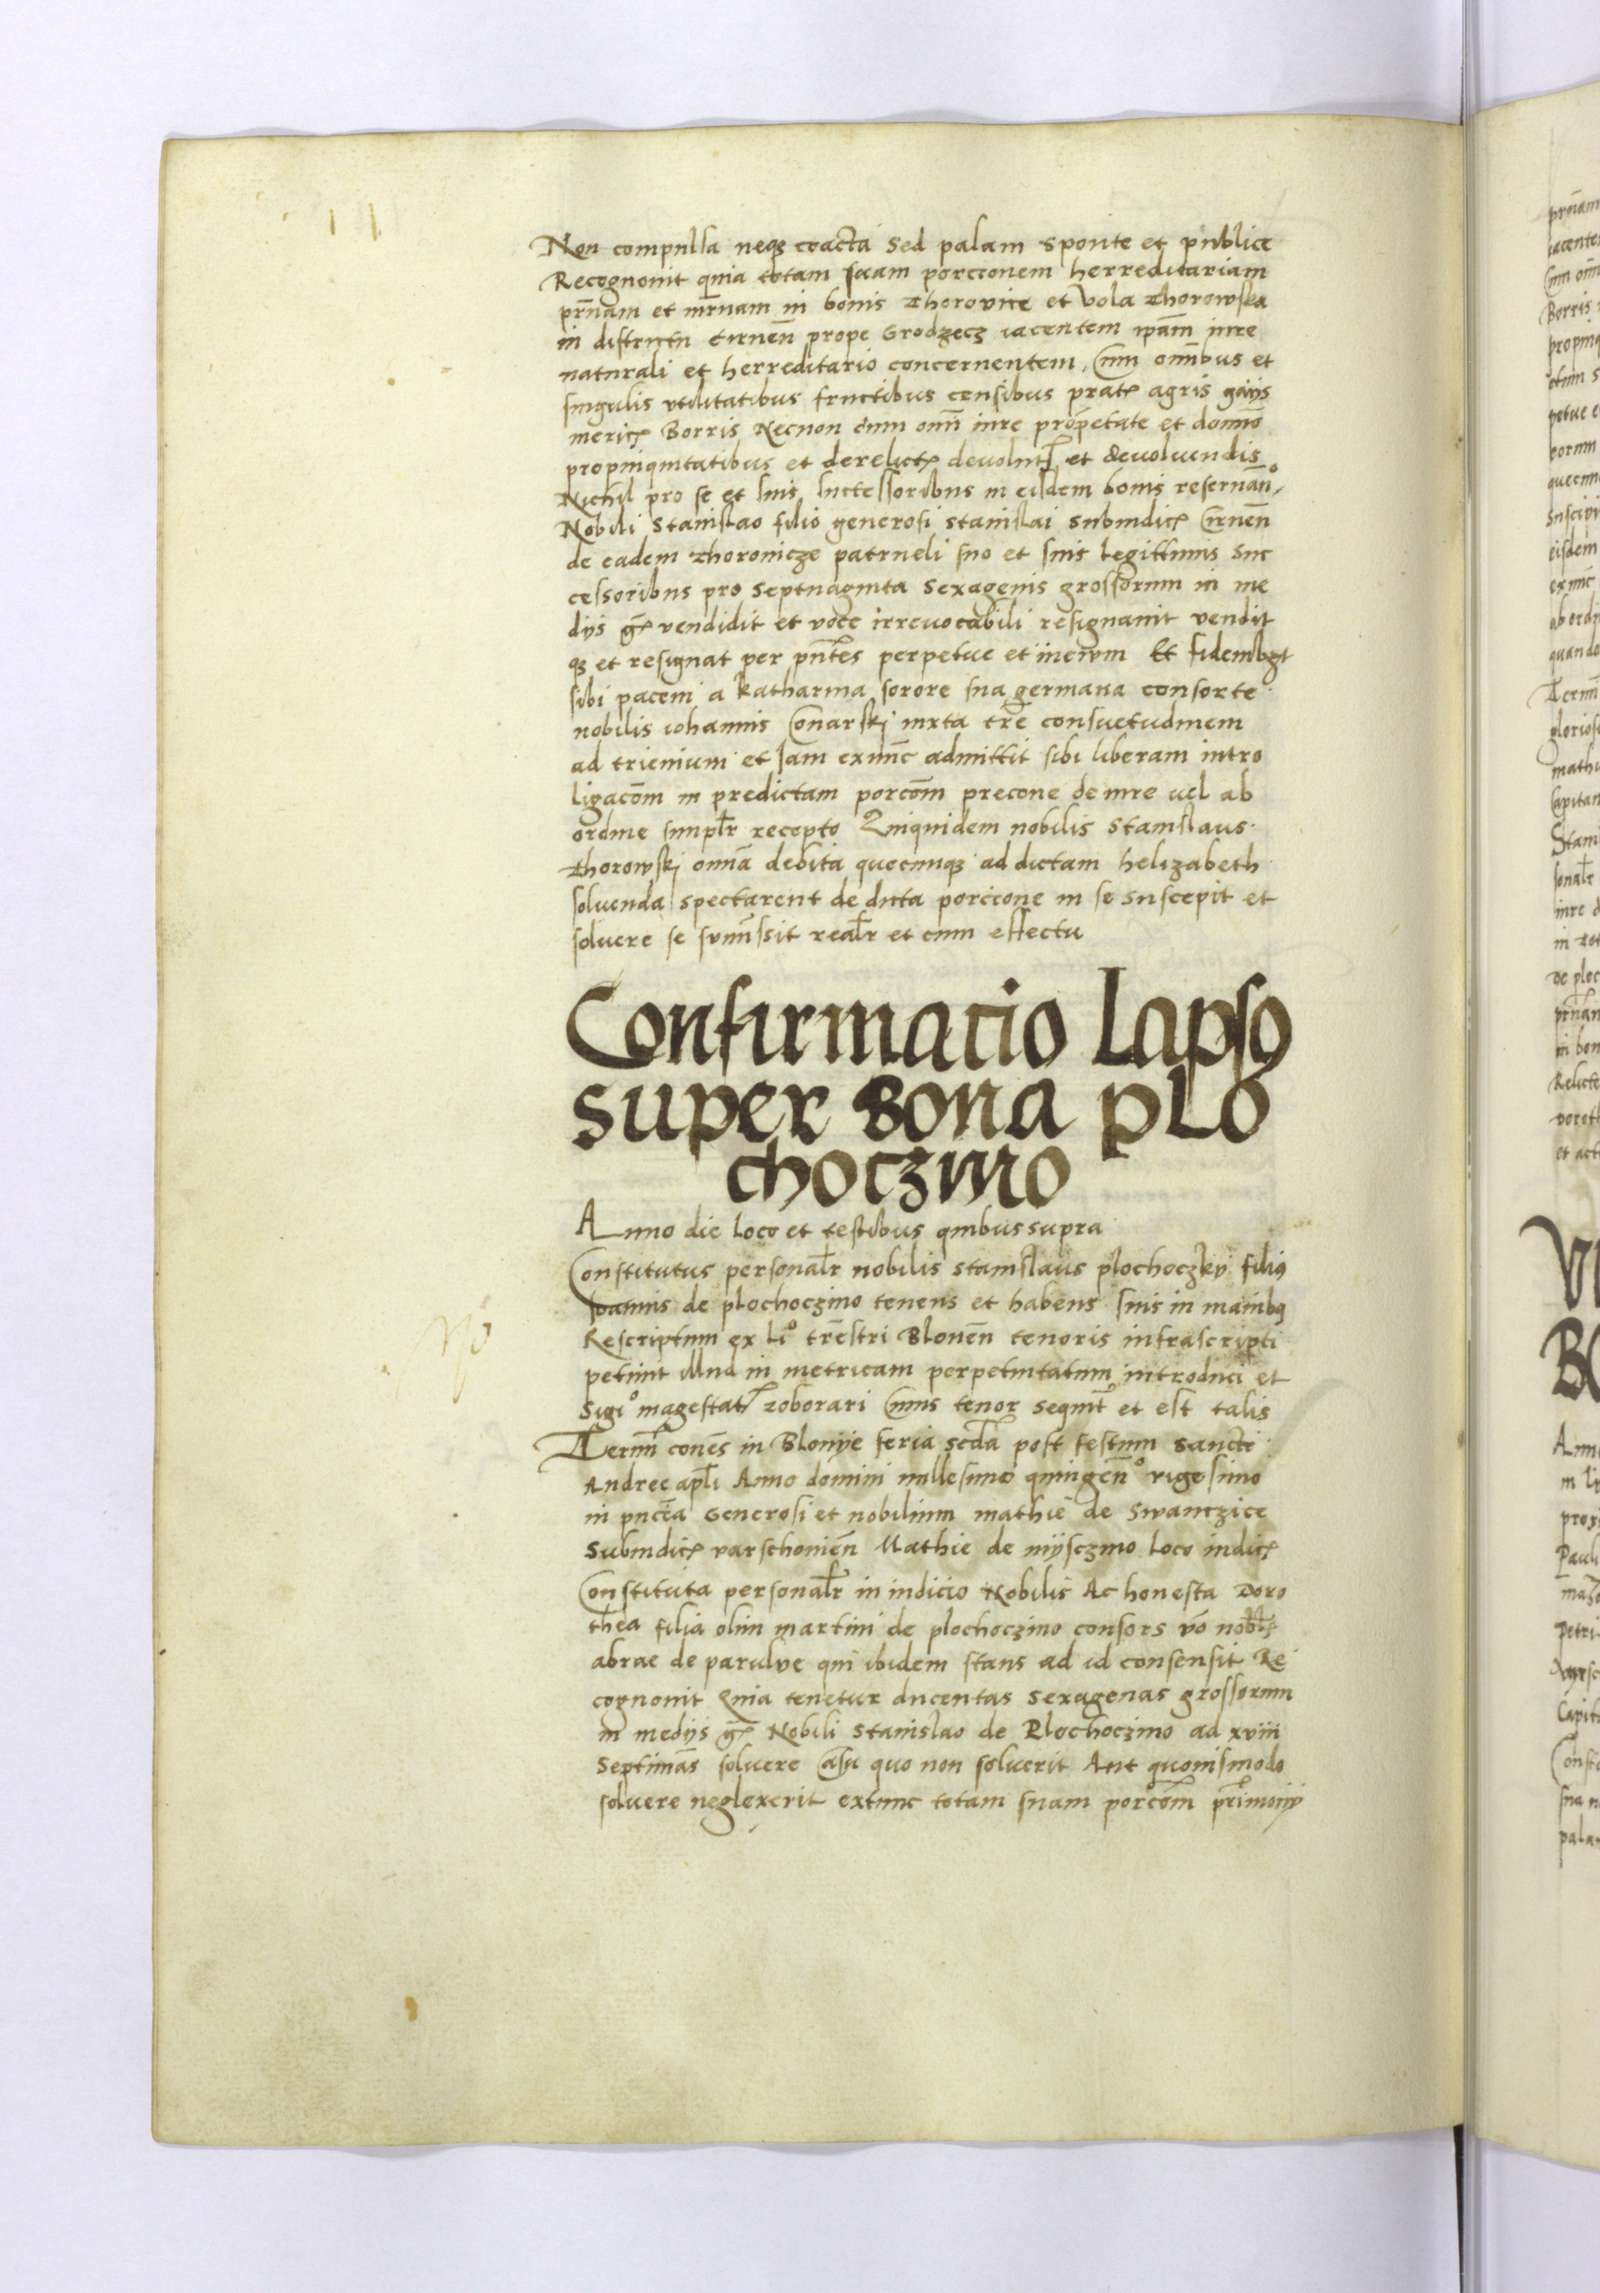 Non compulsa neqꝫ coacta sed palam sponte et publice
Recognouit quia totam suam porcionem herreditariam
pr̄nam et mr̄nam in bonis Thorovice et Vola Thorowska
in districtu Cirnen̄ prope Grodzecz iacentem ip̄am iure
naturali et herreditario concernentem, Cum omībus et
singulis vtilitatibus fructibus censibus prat agris gaÿs
meric Borris Necnon cum omī iure propretate et domīo
propinquitatibus et derelict deuolut et deuoluendis
Nichil pro se et suis successoribus in eisdem bonis reseruan̄º
Nobili Stanislao filio generosi Stanislai Subiudic Cirnen̄
de eadem Thorouicze patrueli suo et suis legittimis suc
cessoribus pro septuaginta sexagenis grossorum in me
dijs g̅ vendidit et voce irreuocabili resignauit vendit
qꝫ et resignat per pn̄tes perpetue et in ewm Et fidem
sibi pacem a katharina sorore sua germana consorte
nobilis iohannis Conarski iuxta tr̄e consuetudinem
ad trienium et Iam exnunc admittit sibi liberam intro
ligacōm in predictam porcōm precone de iure vel ab
ordine simplr̄ recepto Quiquidem nobilis Stanislaus
Thorowski omnīa debita quecunqꝫ ad dictam helizabeth
soluenda spectarent de dicta porcione in se suscepit et
soluere se summissit realr̄ et cum effectu
Confirmacio Lapsꝯ
super Bona plo
choczino
Anno die loco et testibus quibus supra
Constitutus personalr̄ nobilis Stanislaus plochoczky filiꝯ
Ioannis de plochoczino tenens et habens suis in manibꝯ
Rescriptum ex liº trēstri Blonen̄ tenoris infrascripti
petiuit illud in metricam perpetuitatum introduci et
Sigiº magestat roborari Cuius tenor sequit et est talis
Termī conēs in Blonÿe feria scd̄a post festum Sancti
Andree apl̄i Anno domini millesimo quingen̄º vigesimo
in pn̄cia Generosi et nobilium mathie de Swanczice
Subiudic varschouien̄ Mathie de mÿsczino loco iudic
Constituta personalr̄ in iudicio Nobilis Ac honesta Doro
thea filia olim martini de plochoczino consors vō nobil
abrae de parulve qui ibidem stans ad id consensit Re
cognouit Quia tenetur ducentas sexagenas grossorum
in medijs g̅ Nobili Stanislao de Plochoczino ad xviii
Septimās soluere Casu quo non soluerit Aut quouismodo
soluere neglexerit extunc totam suam porcōm pr̄imonij